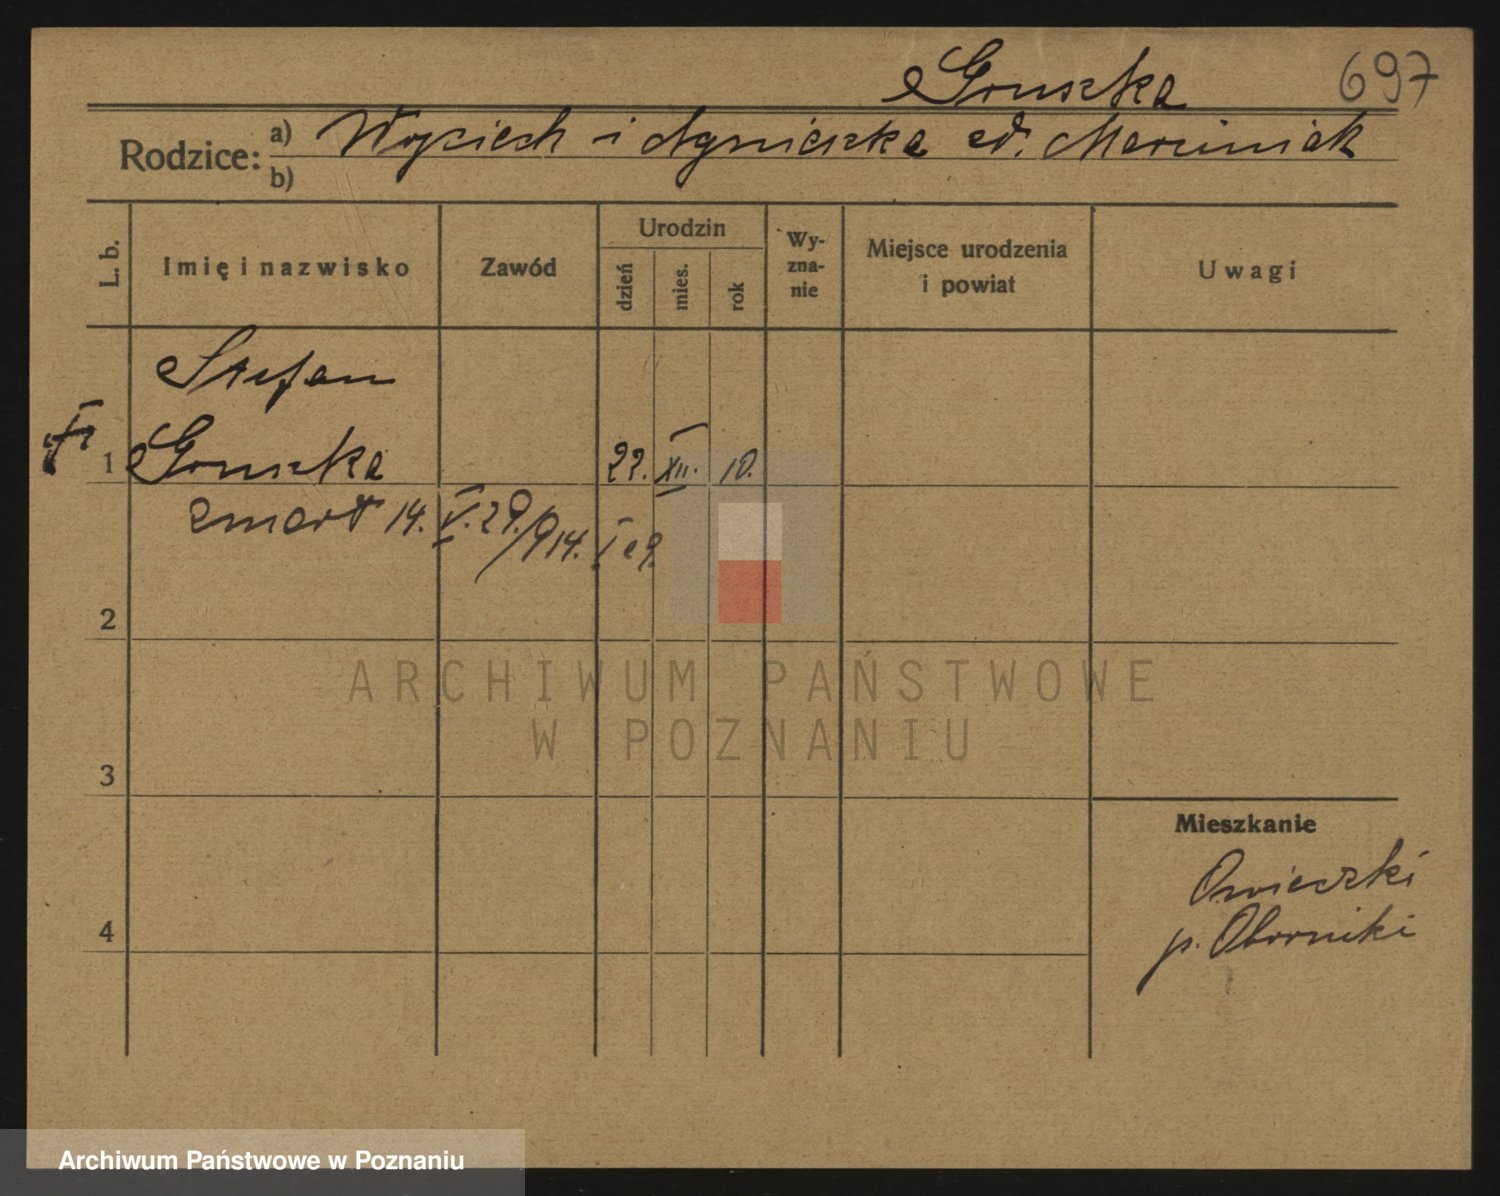 Gruszka 697
Rodzice: a) Wojciech i Agnieszka zd. Marciniak
b)
L. b.
Imię i nazwisko
Zawód
Urodzin
dzień
mies.
rok
Wy-
zna-
nie
Miejsce urodzenia
i powiat
Uwagi
Stefan
1 Gruszka 22. XII. 10.
zmarł 14. V. 29.
2
3
4
Mieszkanie
Owieczki
p. Oborniki
ARCHIWUM PAŃSTWOWE
W POZNANIU
Archiwum Państwowe w Poznaniu